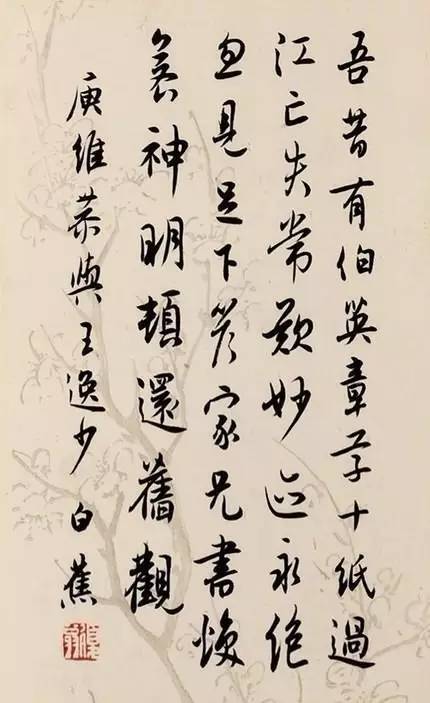 吾昔有伯英章草十紙過
江亡失常歎妙迹永絕
忽見足下答家兄書煥
若神明頓還舊觀
庾稚恭與王逸少 白蕉